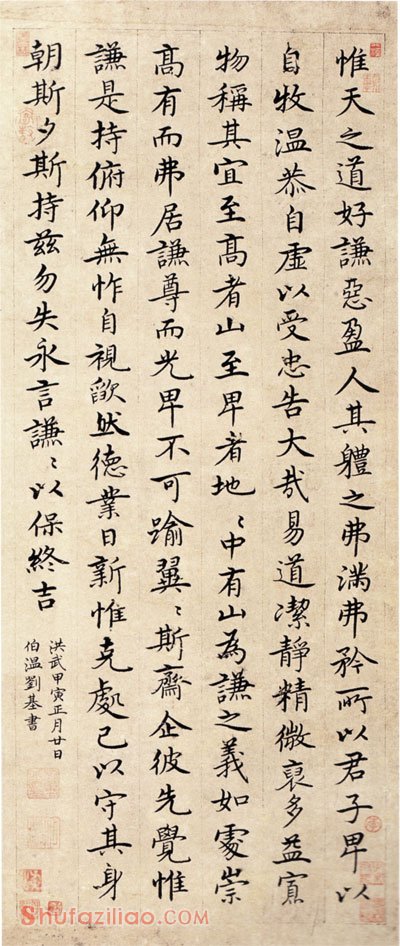 惟天之道好謙惡盈人其軆之弗滿弗矜所以君子卑以
自牧温恭自虛以受忠告大哉易道潔靜精微裒多益寡
物稱其宜至髙者山至卑者地〻中有山為謙之義如處崇
髙有而弗居謙尊而光卑不可踰翼〻斯齋企彼先覺惟
謙是持俯仰無怍自視歉然德業日新惟克處己以守其身
朝斯夕斯持茲勿失永言謙〻以保終吉
洪武甲寅正月廿日
伯温劉基書
Shufaziliao.COM